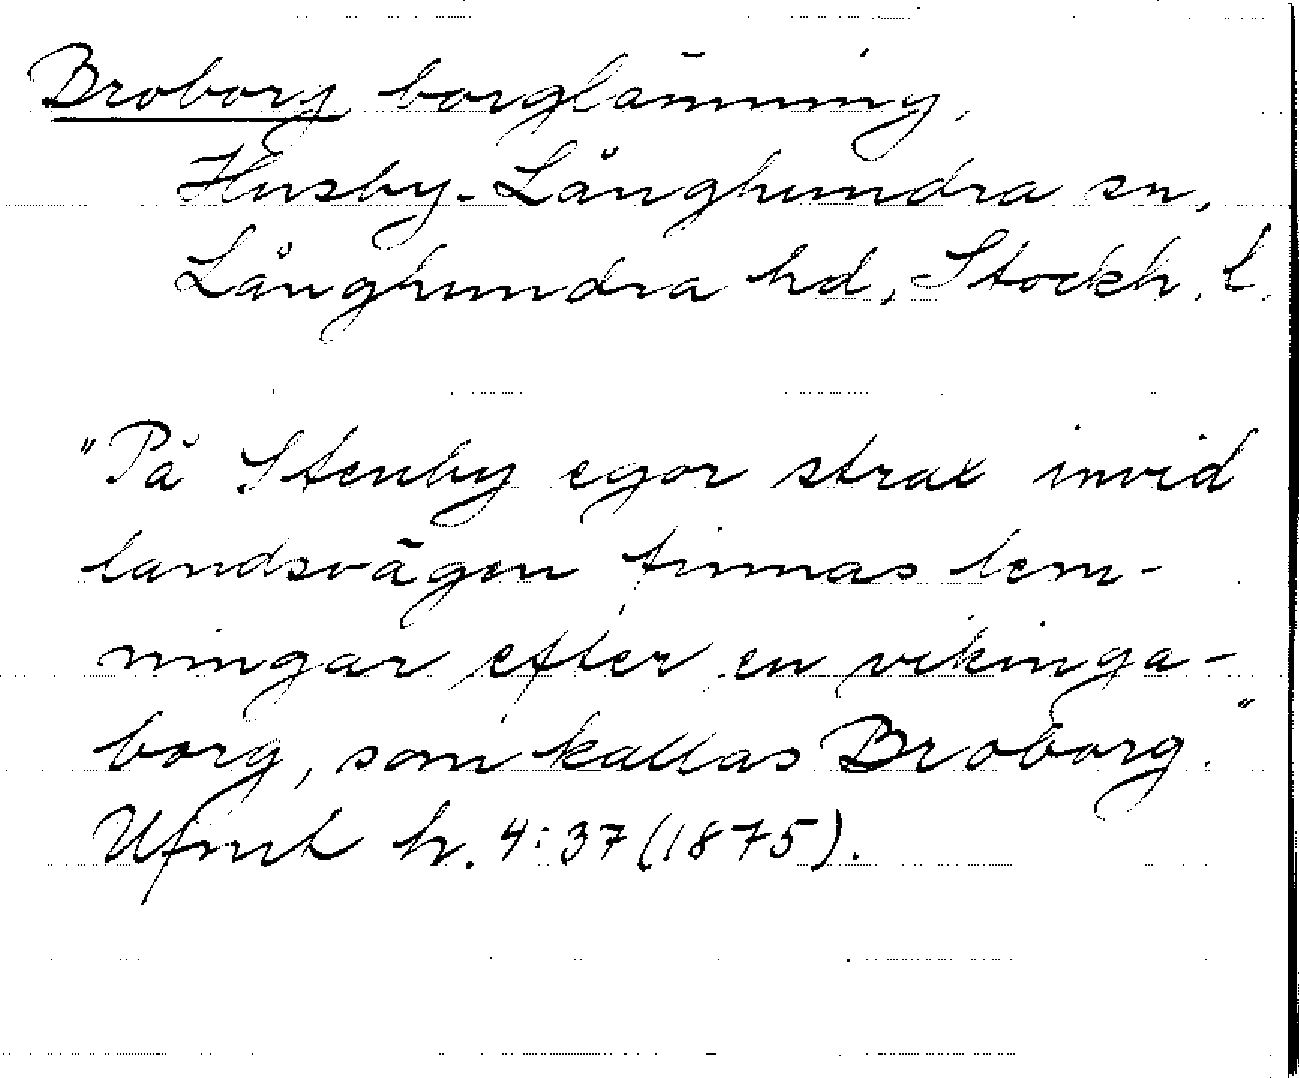 Broborg borglämning,
Husby-Långhundra sn,
Långhundra hd, Stockh. l.
"På Stenby egor strax invid
landsvägen finnas lem-
ningar efter en vikinga-
borg, som kallas Broborg."
Ufmt h. 4:37 (1875).